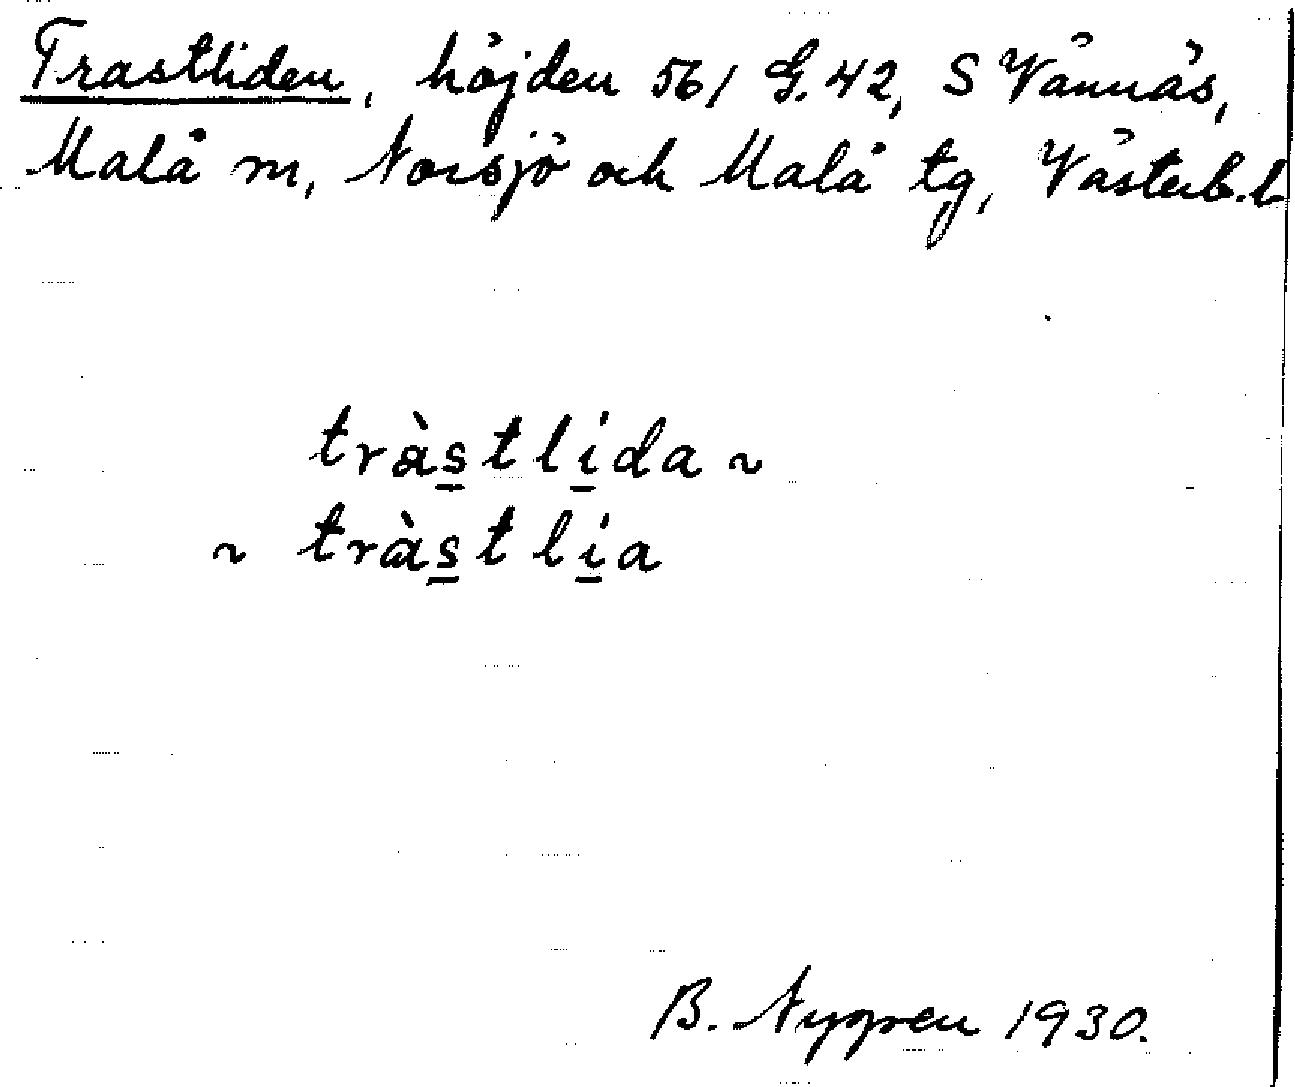 Trastliden, höjden 561 G.42, S Vännäs,
Malå sn, Norsjö och Malå tg, Västerb.l
tràstlida ~
~ tràstlia
B. Nygren 1930.